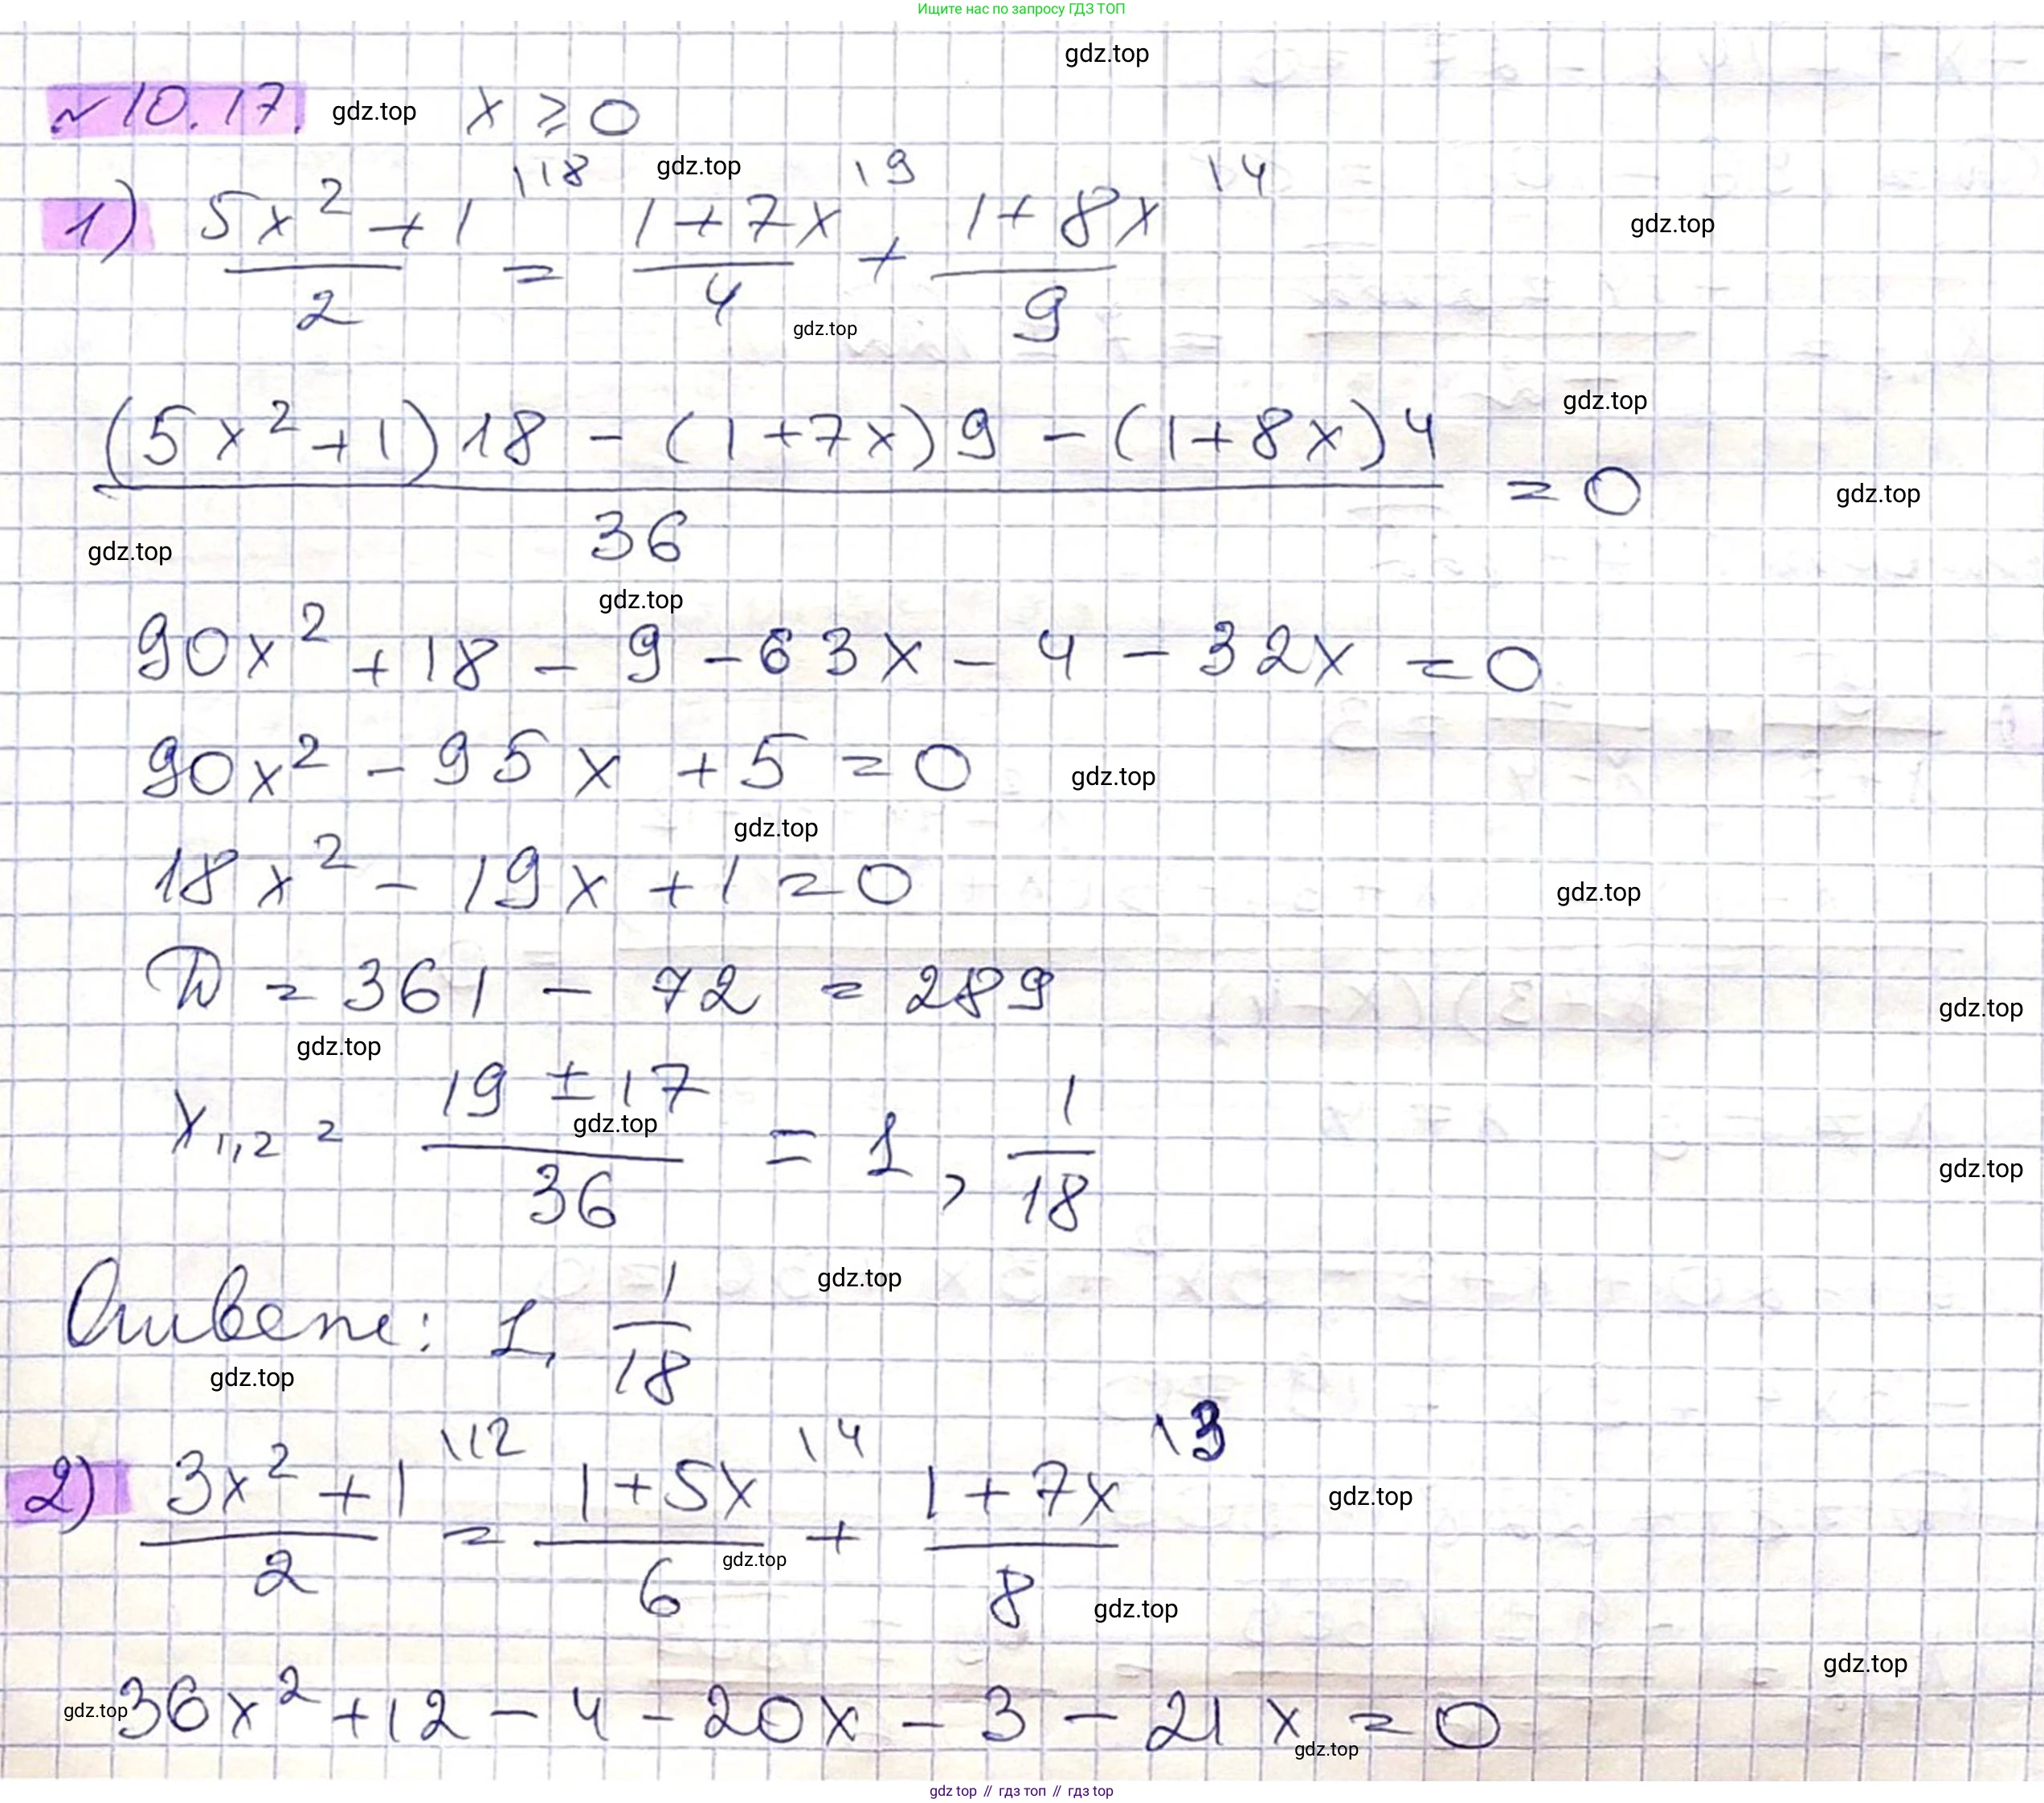 Ищите нас по запросу ГДЗ ТОП
gdz.top
№10.17. gdz.top x ⩾ 0
1) (5x² + 1)/2 \18 = (1 + 7x)/4 \9 + (1 + 8x)/9 \4
gdz.top
gdz.top
gdz.top
gdz.top
((5x² + 1)18 - (1 + 7x)9 - (1 + 8x)4)/36 = 0
gdz.top
gdz.top
gdz.top
90x² + 18 - 9 - 63x - 4 - 32x = 0
90x² - 95x + 5 = 0
gdz.top
gdz.top
18x² - 19x + 1 = 0
gdz.top
D = 361 - 72 = 289
gdz.top
gdz.top
x₁,₂ = (19 ± 17)/36 = 1, 1/18
gdz.top
gdz.top
gdz.top
Ответ: 1, 1/18
gdz.top
2) (3x² + 1)/2 \12 = (1 + 5x)/6 \4 + (1 + 7x)/8 \3
gdz.top
gdz.top
gdz.top
gdz.top
gdz.top
36x² + 12 - 4 - 20x - 3 - 21x = 0
gdz.top
gdz top // гдз топ // гдз top